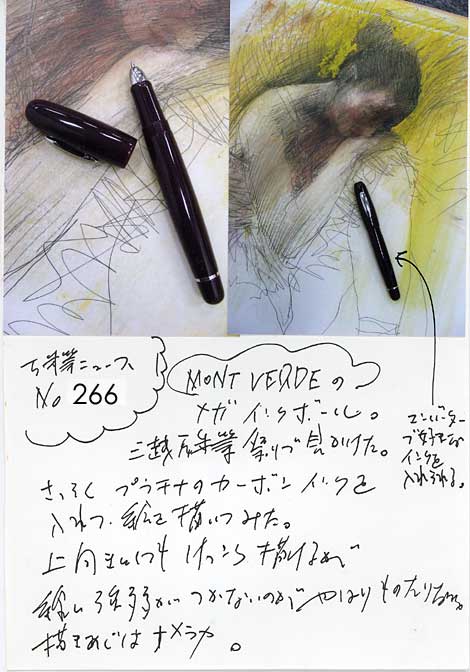 万年筆ニュース
No 266
MONTVERDEの
メガインクボール。
三越万年筆祭りで見かけた。
コンバーター
で好きな
インクを
入れられる。
さっそくプラチナのカーボンインクを
入れて、絵を描いてみた。
上向きにしてもけっこう描けるが
線に強弱がつかないのがやはりものたりない。
描きあじはナメラカ。